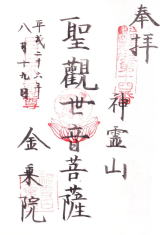 奉拝
神霊山
聖観世音菩薩
金乗院
平成二十六年
八月十九日